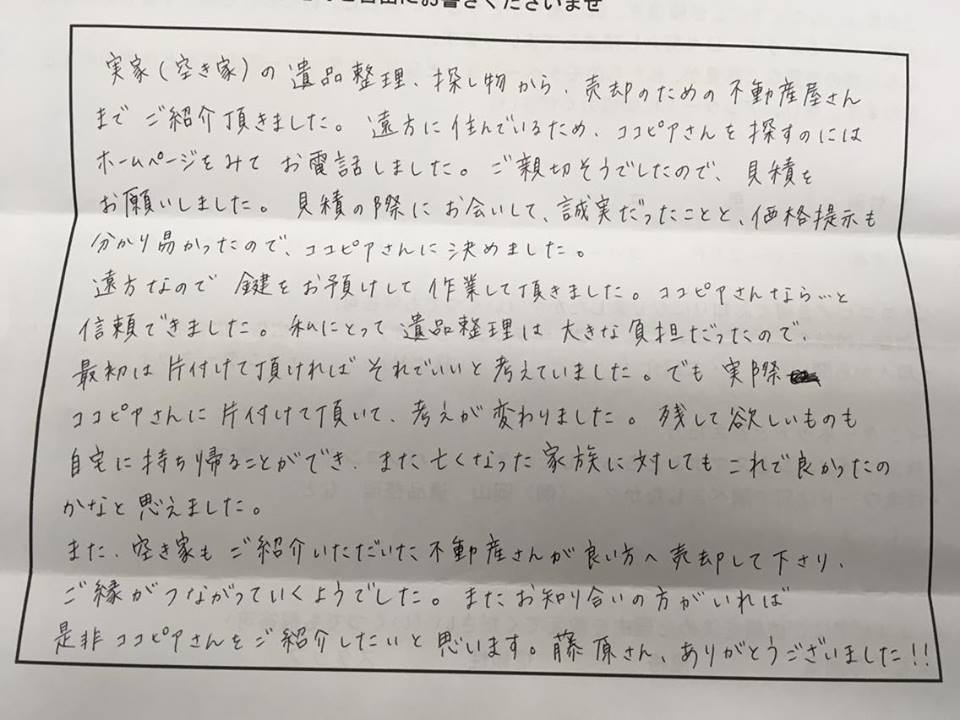 ご自由にお書きくださいませ
実家(空き家)の遺品整理、探し物から、売却のための不動産屋さん
までご紹介頂きました。遠方に住んでいるため、ココピアさんを探すのには
ホームページをみてお電話しました。ご親切そうでしたので、見積を
お願いしました。見積の際にお会いして、誠実だったことと、価格提示も
分かり易かったので、ココピアさんに決めました。
遠方なので鍵をお預けして作業して頂きました。ココピアさんなら…と
信頼できました。私にとって遺品整理は大きな負担だったので、
最初は片付けて頂ければそれでいいと考えていました。でも実際
ココピアさんに片付けて頂いて、考えが変わりました。残して欲しいものも
自宅に持ち帰ることができ、また亡くなった家族に対してもこれで良かったの
かなと思えました。
また、空き家もご紹介いただいた不動産さんが良い方へ売却して下さり、
ご縁がつながっていくようでした。またお知り合いの方がいれば
是非ココピアさんをご紹介したいと思います。藤原さん、ありがとうございました!!